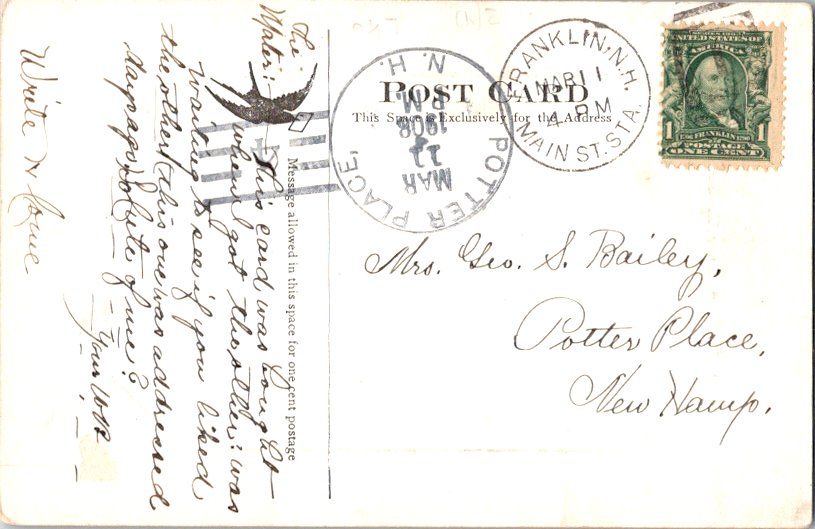 POST CARD
This Space is Exclusively for the Address
Message allowed in this space for one cent postage
FRANKLIN, N.H.
MAR 11
4 PM
MAIN ST. STA.
POTTER PLACE,
N. H.
MAR
11
PM
1908
SERIES 1902
UNITED STATES OF
AMERICA
FRANKLIN
1 1
POSTAGE
ONE CENT
Mrs. Geo. S. Bailey,
Potter Place,
New Hamp.
The
This card was bought
when I got the other: was
waiting to see if you liked
the other (this one was addressed
days ago,
of me?
Your
Write &